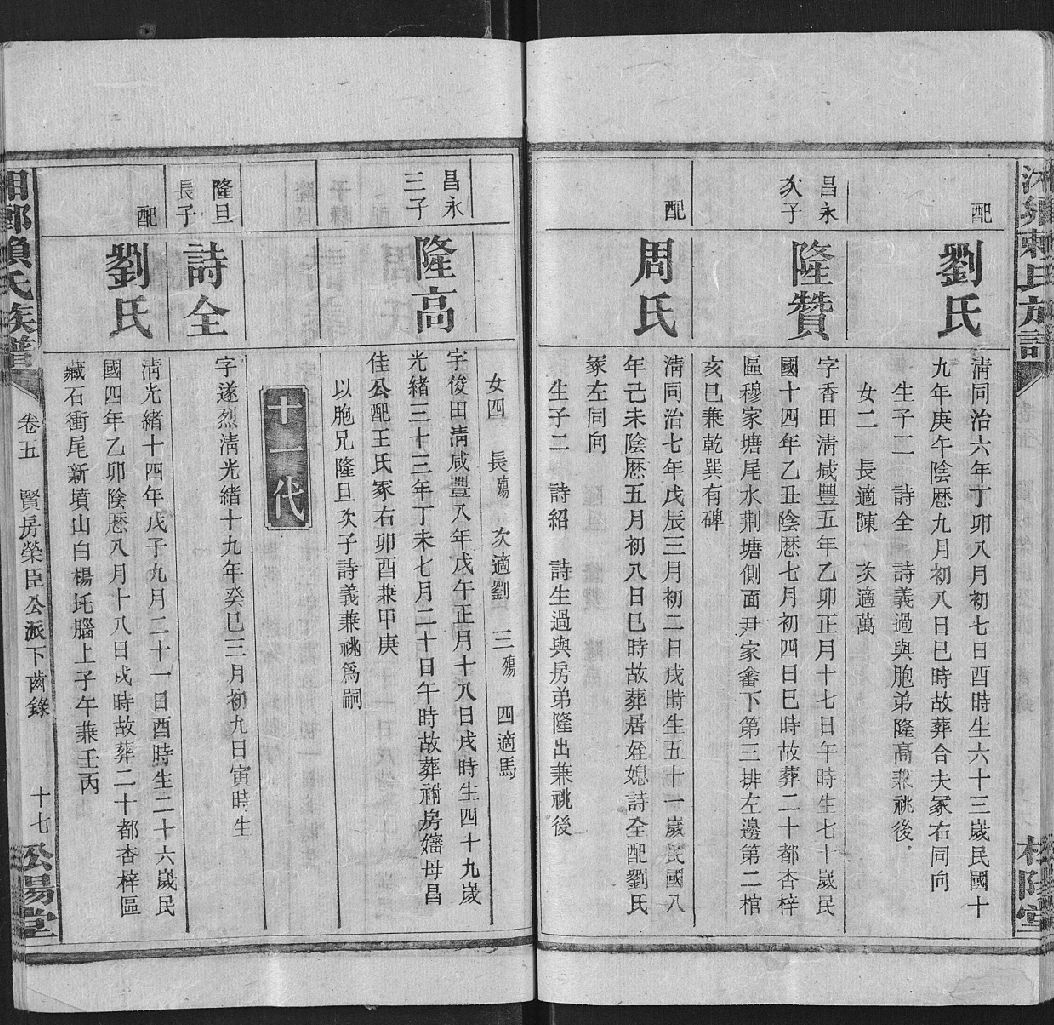 配
劉氏
清同治六年丁卯八月初七日酉時生六十三歲民國十
九年庚午陰歷九月初八日巳時故葬合夫冢右同向
生子二 詩全 詩義過與胞弟隆高兼祧後
女二 長適陳 次適萬
昌永
次子
隆贊
字香田清咸豐五年乙卯正月十七日午時生七十歲民
國十四年乙丑陰歷七月初四日巳時故葬二十都杏梓
區穆家塘尾水荆塘側面尹家畬下第三排左邊第二棺
亥巳兼乾巽有碑
配
周氏
清同治七年戊辰三月初二日戌時生五十一歲民國八
年己未陰歷五月初八日巳時故葬居姪媳詩全配劉氏
冢左同向
生子二 詩紹 詩生過與房弟隆出兼祧後
女四 長殤 次適劉 三殤 四適馬
昌永
三子
隆高
字俊田清咸豐八年戊午正月十八日戌時生四十九歲
光緒三十三年丁未七月二十日午時故葬補房嬸母昌
佳公配王氏冢右卯酉兼甲庚
以胞兄隆旦次子詩義兼祧爲嗣
十一代
隆旦
長子
詩全
字遂烈清光緒十九年癸巳三月初九日寅時生
配
劉氏
清光緒十四年戊子九月二十一日酉時生二十六歲民
國四年乙卯陰歷八月十八日戌時故葬二十都杏梓區
藏石衝尾新墳山白楊坨腦上子午兼壬丙
湘鄉賴氏族譜
卷五 賢房榮臣公派下齒錄
十七
松陽堂